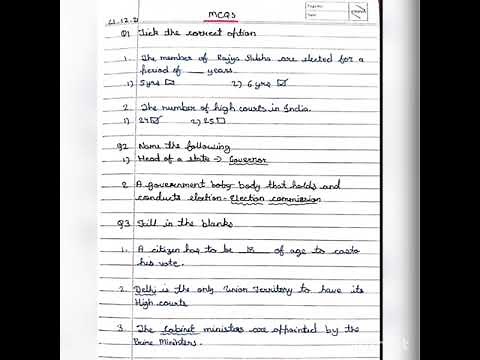 MCQS
Q1 Tick the correct option
1. The member of Rajya Sabha are elected for a
period of ___ years.
1) 5yrs 2) 6 yrs ☑
2 The number of high courts in India.
1) 24 ☑ 2) 25 ☐
Q2 Name the following
1) Head of a state → Governor
2 A government body that holds and
conducts election- Election commission
Q3 Fill in the blanks
1. A citizen has to be 18 of age to casto
his vote.
2. Delhi is the only Union Territory to have its
High courts
3. The Cabinet ministers are appointed by the
Prime Ministers.